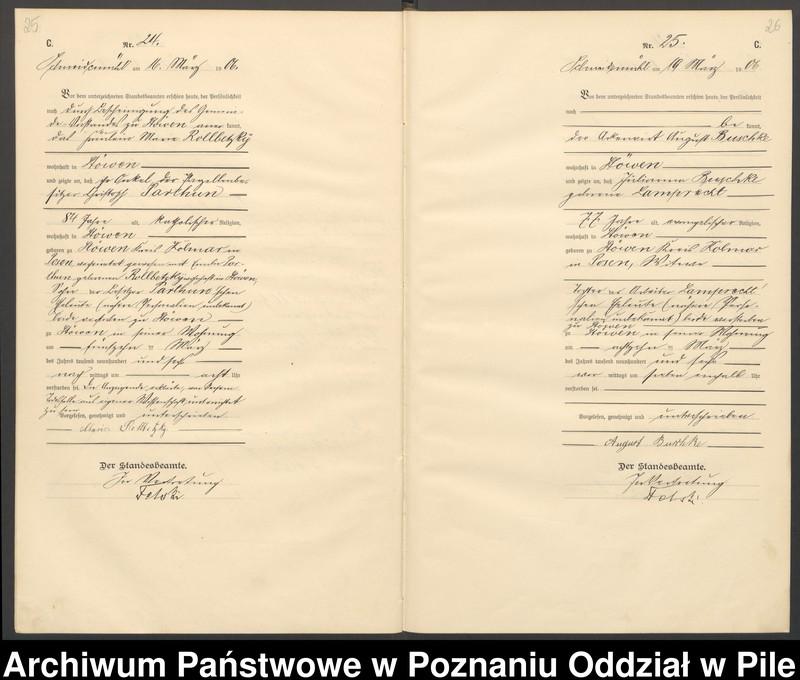 25
C.
Nr. 24.
Schneidemühl am 16. März 1906.
Vor dem unterzeichneten Standesbeamten erschien heute, der Persönlichkeit
nach durch Bescheinigung des Gemein-
de-Vorstandes zu Stöwen aner kannt,
das Fräulein Marie Rollbetzky
wohnhaft in Stöwen
und zeigte an, daß ihr Onkel, der Parzellenbe-
sitzer Christoph Parchun
84 Jahre alt, katholischer Religion,
wohnhaft in Stöwen
geboren zu Stöwen Kreis Kolmar in
Posen, verheiratet gewesen mit
geborenen Rollbetzky wohnhaft in Stöwen,
Sohn der Besitzer Parchun'schen
Eheleute (nähere Personalien unbekannt)
beide verstorben zu Stöwen
zu Stöwen in seiner Wohnung
am fünfzehn ten März
des Jahres tausend neunhundert und sechs
nach mittags um acht Uhr
verstorben sei. Die Anzeigende erklärte, von diesem
Todesfalle aus eigener Wissenschaft unterrichtet
zu sein
Vorgelesen, genehmigt und unterschrieben
Marie Rollbetzky
Der Standesbeamte.
In Vertretung
26
Nr. 25.
C.
Schneidemühl am 19 März 1906
Vor dem unterzeichneten Standesbeamten erschien heute, der Persönlichkeit
nach
be kannt,
der Ackerwirt August Buschke
wohnhaft in Stöwen
und zeigte an, daß Julianna Buschke
geborene Lamprecht
77 Jahre alt, evangelischer Religion,
wohnhaft in Stöwen
geboren zu Stöwen Kreis Kolmar
in Posen, Witwe
Tochter der Arbeiter Lamprecht'
schen Eheleute (nähere Perso-
nalien unbekannt) beide verstorben
zu Stöwen
zu Stöwen in seiner Wohnung
am achtzehn ten März
des Jahres tausend neunhundert und sechs
vor mittags um sieben einhalb Uhr
verstorben sei.
Vorgelesen, genehmigt und unterschrieben
August Buschke
Der Standesbeamte.
In Vertretung
Archiwum Państwowe w Poznaniu Oddział w Pile